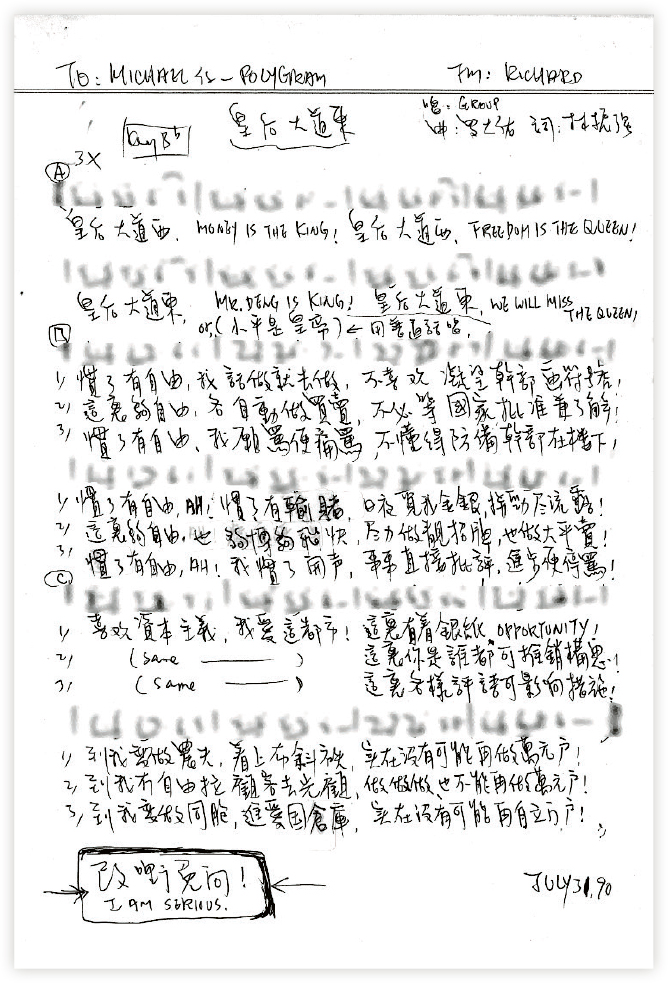 TO: MICHAEL 仔 - POLYGRAM FM: RICHARD
唱: GROUP
Key Bb 皇后大道東 曲: 罗大佑 詞: 林振强
A 3X
皇后大道西, MONEY IS THE KING! 皇后大道西, FREEDOM IS THE QUEEN!
皇后大道東, MR. DENG IS KING! 皇后大道東, WE WILL MISS THE QUEEN!
or, (小平是皇帝) ← 用普通話唱,
B
1, 慣了有自由, 我話做就去做, 不喜欢凝望幹部
2, 這裏夠自由, 各自動做買賣, 不必等國家批准
3, 慣了有自由, 我願罵便痛罵, 不懂得防備幹部在樓下!
1, 慣了有自由, AH! 慣了有輸賭, 日夜覓求金銀,
2, 這裏夠自由, 也夠博夠爽快, 尽力做靚招牌, 也做大平賣!
3, 慣了有自由, AH! 我慣了開声, 事事直接批評, 進步便得罵!
C
1, 喜欢資本主義, 我愛這都市! 這裏有着銀紙, OPPORTUNITY!
2, (same ——— ) 這裏你是誰都可推銷構思!
3, (same ——— ) 這裏各樣評語可影响措施!
1, 到我要做農夫, 着上布斜衣, 实在没有可能再做萬元户!
2, 到我冇自由拉顧客去光顧, 做做做做也不能再做萬元户!
3, 到我要做同胞, 進愛国倉庫, 实在没有可能再自立门户!
改嘢免问!
I AM SERIOUS.
JULY 31, 90